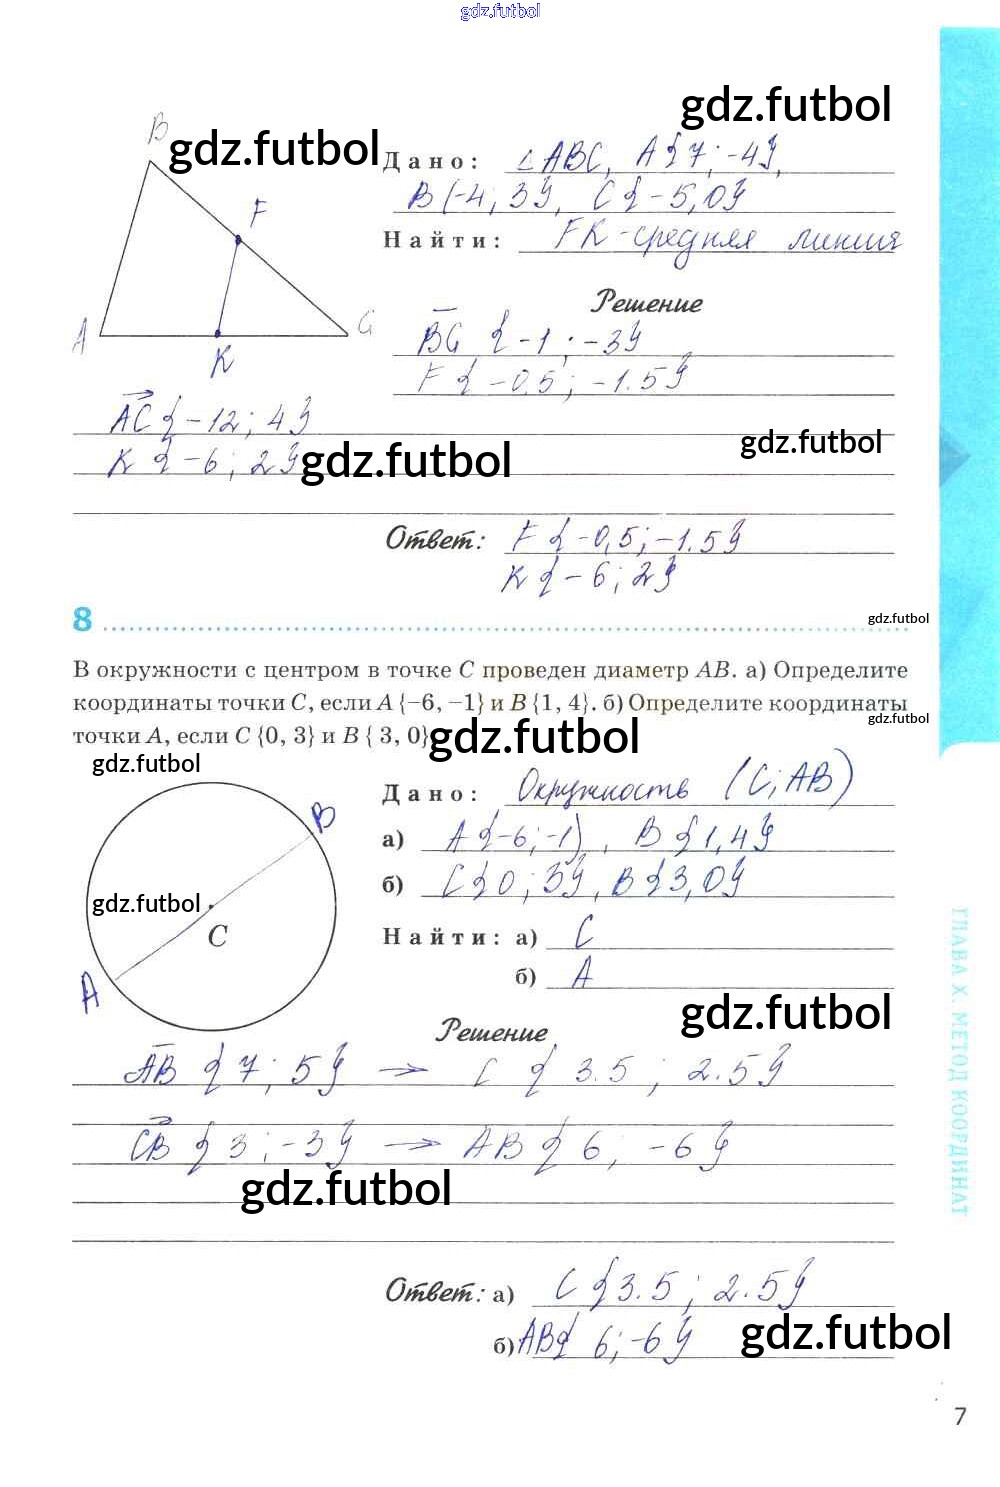 gdz.futbol
gdz.futbol
B
gdz.futbol
Дано: △ ABC, A{7; -4},
B{-4; 3}, C{-5, 0}
F
Найти: FK - средняя линия
Решение
A
K
C
BC {-1; -3}
F {-0,5; -1.5}
AC {-12; 4}
gdz.futbol
K {-6; 2}
gdz.futbol
Ответ: F {-0,5; -1.5}
K {-6; 2}
8
gdz.futbol
В окружности с центром в точке C проведен диаметр AB. а) Определите
координаты точки C, если A {−6, −1} и B {1, 4}. б) Определите координаты
gdz.futbol
точки A, если C {0, 3} и B { 3, 0}
gdz.futbol
gdz.futbol
Дано: Окружность (C; AB)
B
а) A{-6; -1}, B{1, 4}
б) C{0; 3}, B{3, 0}
gdz.futbol
C
Найти: а) C
б) A
A
gdz.futbol
Решение
AB {7; 5} → C {3.5; 2.5}
CB {3; -3} → AB {6; -6}
gdz.futbol
Ответ: а) C {3.5; 2.5}
б) AB{ 6; -6}
gdz.futbol
ГЛАВА X. МЕТОД КООРДИНАТ
7